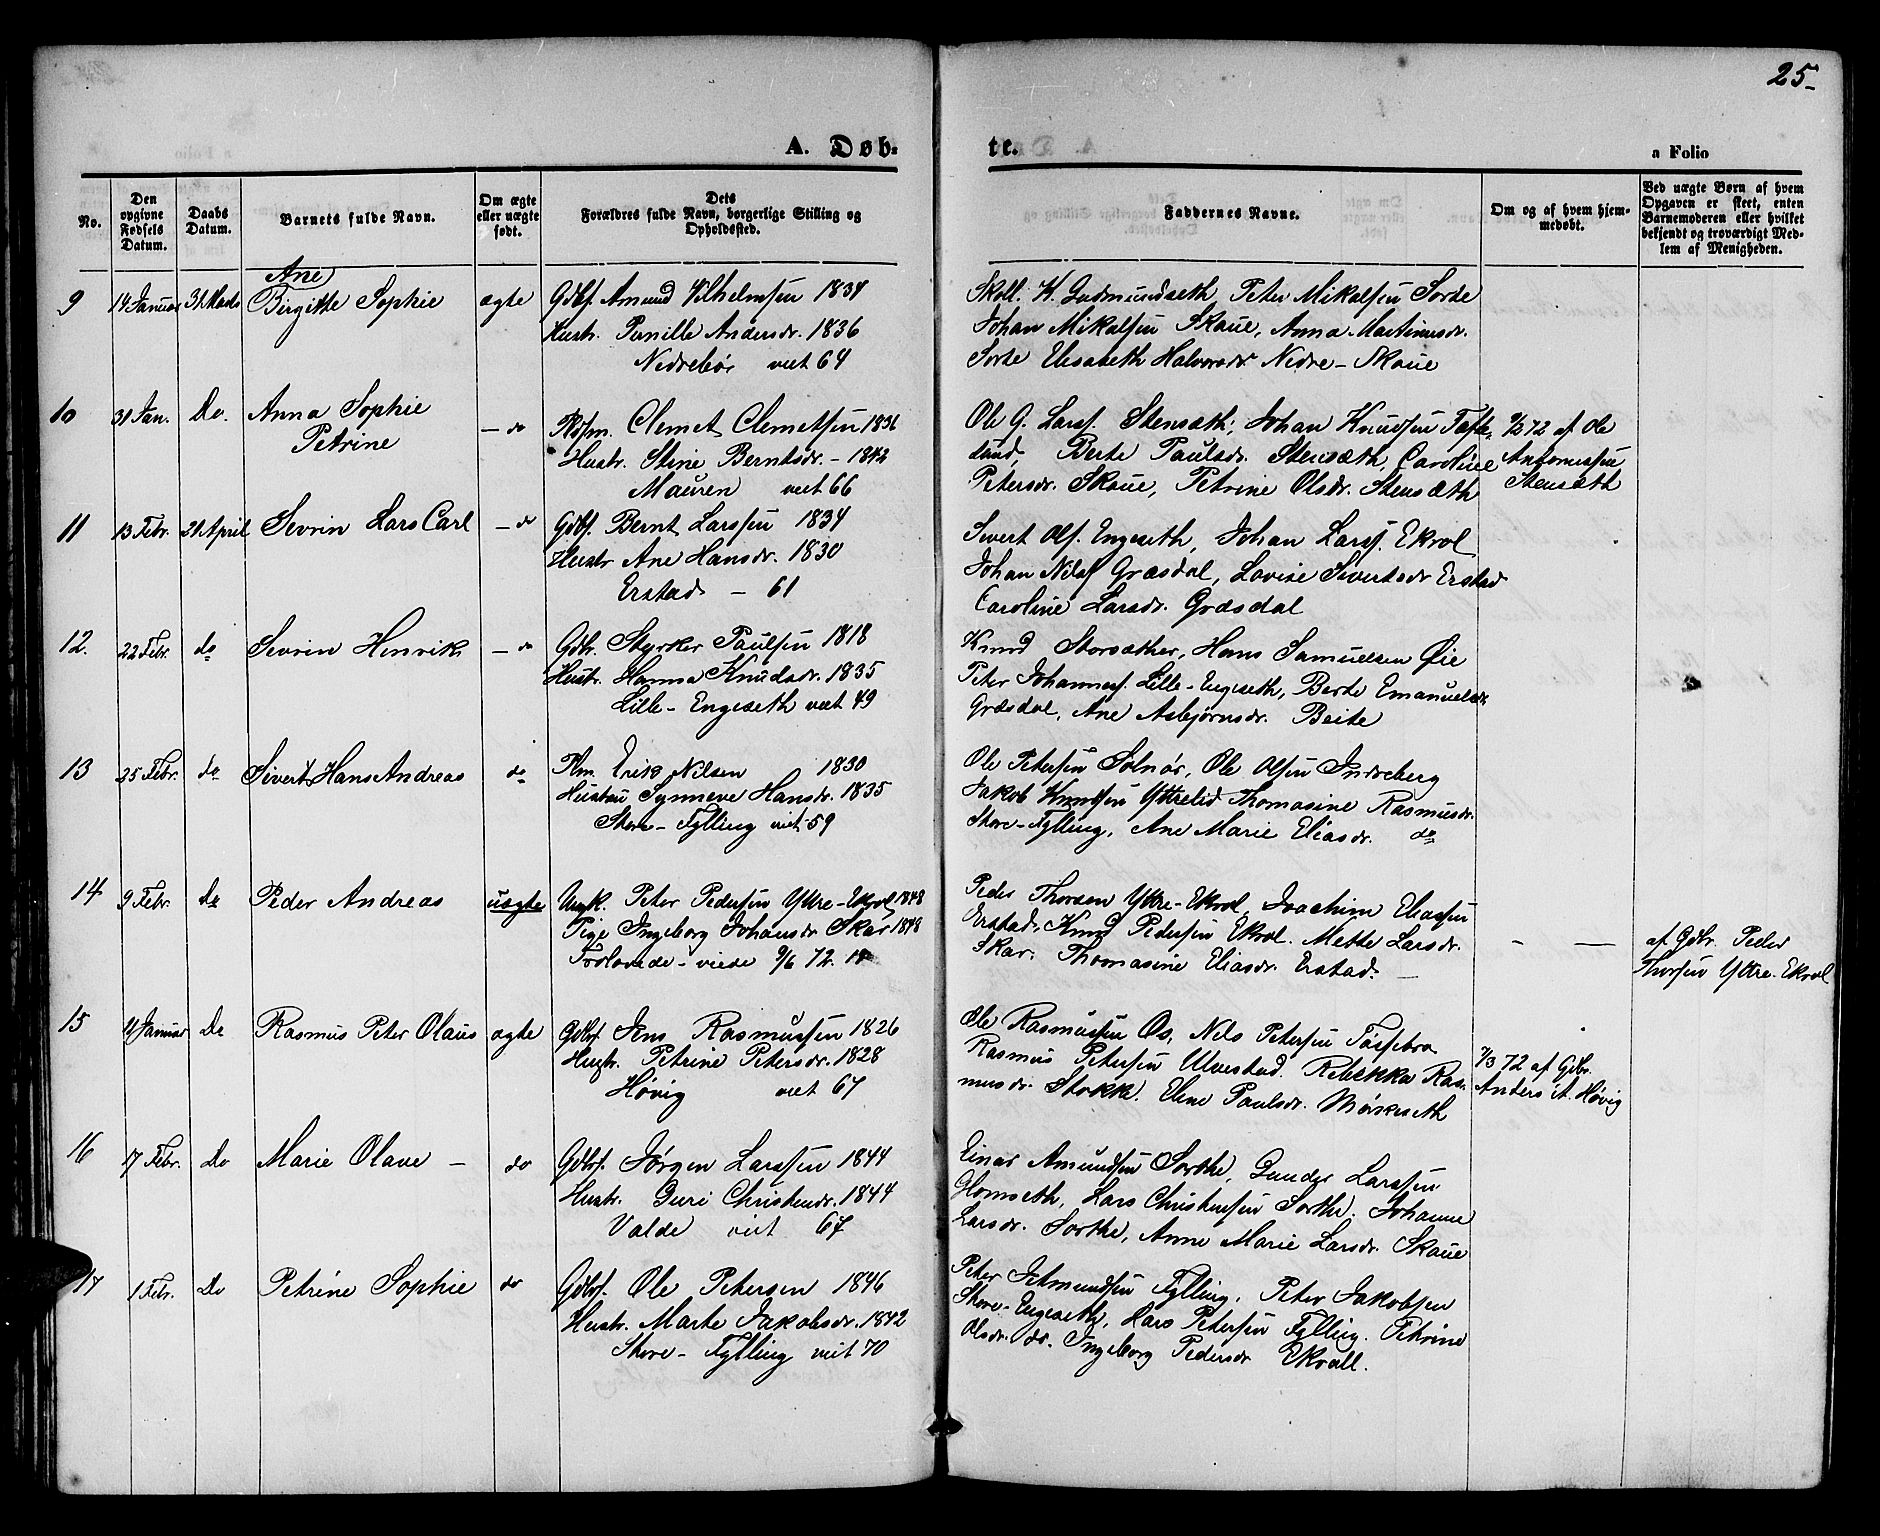 25
A. Døb-
te.
a Folio
No.
Den opgivne Fødsels Datum.
Daabs Datum.
Barnets fulde Navn.
Om ægte eller uægte født.
Dets Forældres fulde Navn, borgerlige Stilling og Opholdssted.
Faddernes Navne.
Om og af hvem hjemmedøbt.
Ved uægte Børn af hvem Opgaven er skeet, enten Barnemoderen eller hvilket bekjendt og troværdigt Medlem af Menigheden.
9 14 Januar 31 Marts Ane Birgitte Sophie ægte
Gdbf. Amund Vilhelmsen 1834
Hustr. Pernille Andersdr. 1836
Nedrebø viet 64
Skoll. K. Gudmundsæth, Peter Mikalsen Sorte
Johan Mikalsen Skaue, Anna Martinusdr.
Sorte Elisabeth Halvorsdr Nedre-Skaue
10 31 Jan. Do. Anna Sophie Petrine – do
Clemet Clemetsen 1836
Hustr. Stine Berntsdr. – 1842
Mauren viet 66
Ole G. Larss. Stensæth, Johan Knudsen Tafte-
sund, Berte Paulsdr. Stensæth, Caroline
Petersdr. Skaue, Petrine Olsdr. Stensæth
72 af Ole
Antoniussen
Stensæth
11 13 Febr. 21 April Sevrin Lars Carl – do
Gdbf. Bernt Larssen 1834
Hustr Ane Hansdr. 1830
Erstad – 61
Sivert Ols. Engeseth, Johan Larss. Ekrol
Johan Nilss Græsdal, Lovise Sivertsdr Erstad
Caroline Larsdr. Græsdal
12. 22 Febr. do Sevrin Henrik – do
Gdbr. Styrker Paulsen 1818
Hustr. Hanna Knudsdr. 1835
Lille-Engeseth viet 49
Knud Storsæther, Hans Samuelsen Øie
Peter Johanness. Lille-Engeseth, Berte Emanuelsdr.
Græsdal, Ane Asbjørnsdr. Beite
13 25 Febr. do Sivert Hans Andreas do
Plm. Erik Nilsen 1830
Hustru Synneve Hansdr. 1835
Store-Fylling viet 59
Ole Petersen Solnør, Ole Olsen Indreberg
Jakob Knudsen Yttrelid Thomasine Rasmusdr.
Store-Fylling, Ane Marie Eliasdr. do
14 9 Febr. do Peder Andreas uægte
Ungk. Peter Pedersen Yttre-Ekrol 1848
Pige Ingeborg Johansdr Skar 1848
Trolovede – viede 9/6 72.
Peder Thorsen Yttre-Ekrol, Joachim Eliassen
Erstad, Knud Pedersen Ekrol. Mette Larsdr.
Skar. Thomasine Eliasdr. Erstad. –
– —
af Gdbr. Peder
Thorsen Yttre-Ekrol
15 11 Januar Do Rasmus Peter Olaus ægte
Gdbf. Jens Rasmussen 1826
Hustr. Petrine Petersdr. 1828
Høvig viet 67
Ole Rasmussen Os, Nils Petersen Fossebra
Rasmus Petersen Ulvestad. Rebekka Ras-
musdr. Stokke. Eline Paulsdr. Mørkeseth
7/3 72 af Gdbr.
Anders A. Høvig
16 17 Febr. Do Marie Olave – do
Gdbf. Jørgen Larssen 1844
Hustr. Guri Christendr. 1844
Valde viet 67
Einar Amundsen Sorthe, Gunder Larssen
Glomseth, Lars Christensen Sorthe. Johanne
Larsdr. Sorthe, Anne Marie Larsdr. Skaue
17 1 Febr. Do Petrine Sophie do
Gdbf. Ole Petersen 1846
Hustr. Marte Jakobsdr. 1842
Store-Fylling viet 70
Peter Ietmundsen Fylling. Peter Jakobsen
Store-Engeseth, Lars Petersen Fylling. Petrine
Olsdr. do. Ingeborg Pedersdr Ekroll.